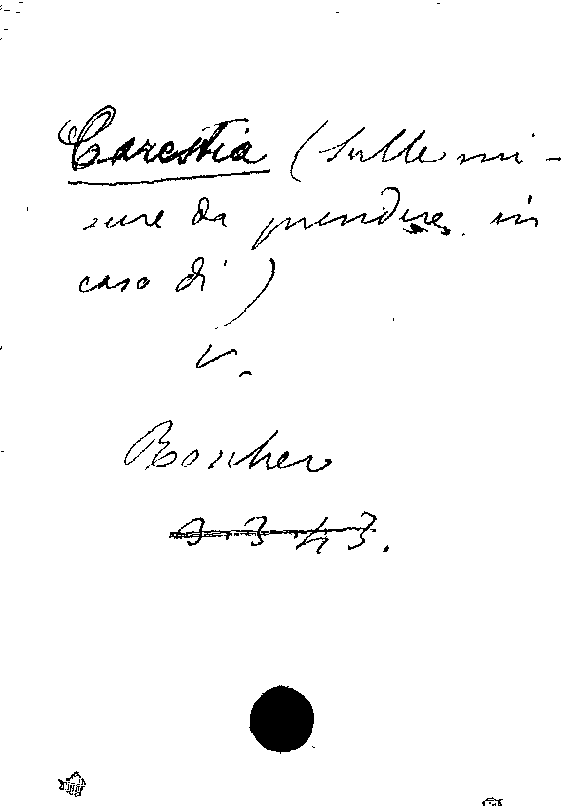 Carestia (Sulle mi-
sure da prendere in
caso di)
V.
Roscher
3.3.43.